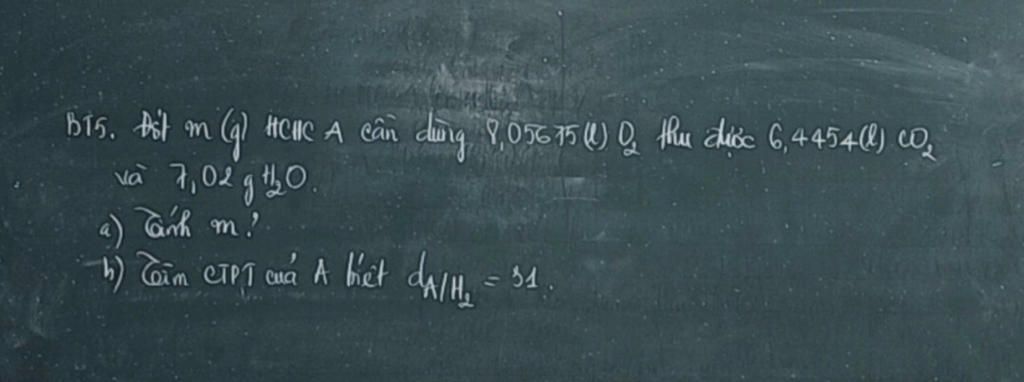 BT5. Đốt m (g) HCHC A cần dùng 8,05675 (l) O2 thu được 6,4454 (l) CO2
và 7,02 g H2O.
a) Tính m?
b) Tìm CTPT của A biết dA/H2 = 31.